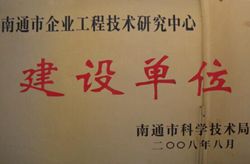 南通市企业工程技术研究中心
建设单位
南通市科学技术局
二〇〇八年八月